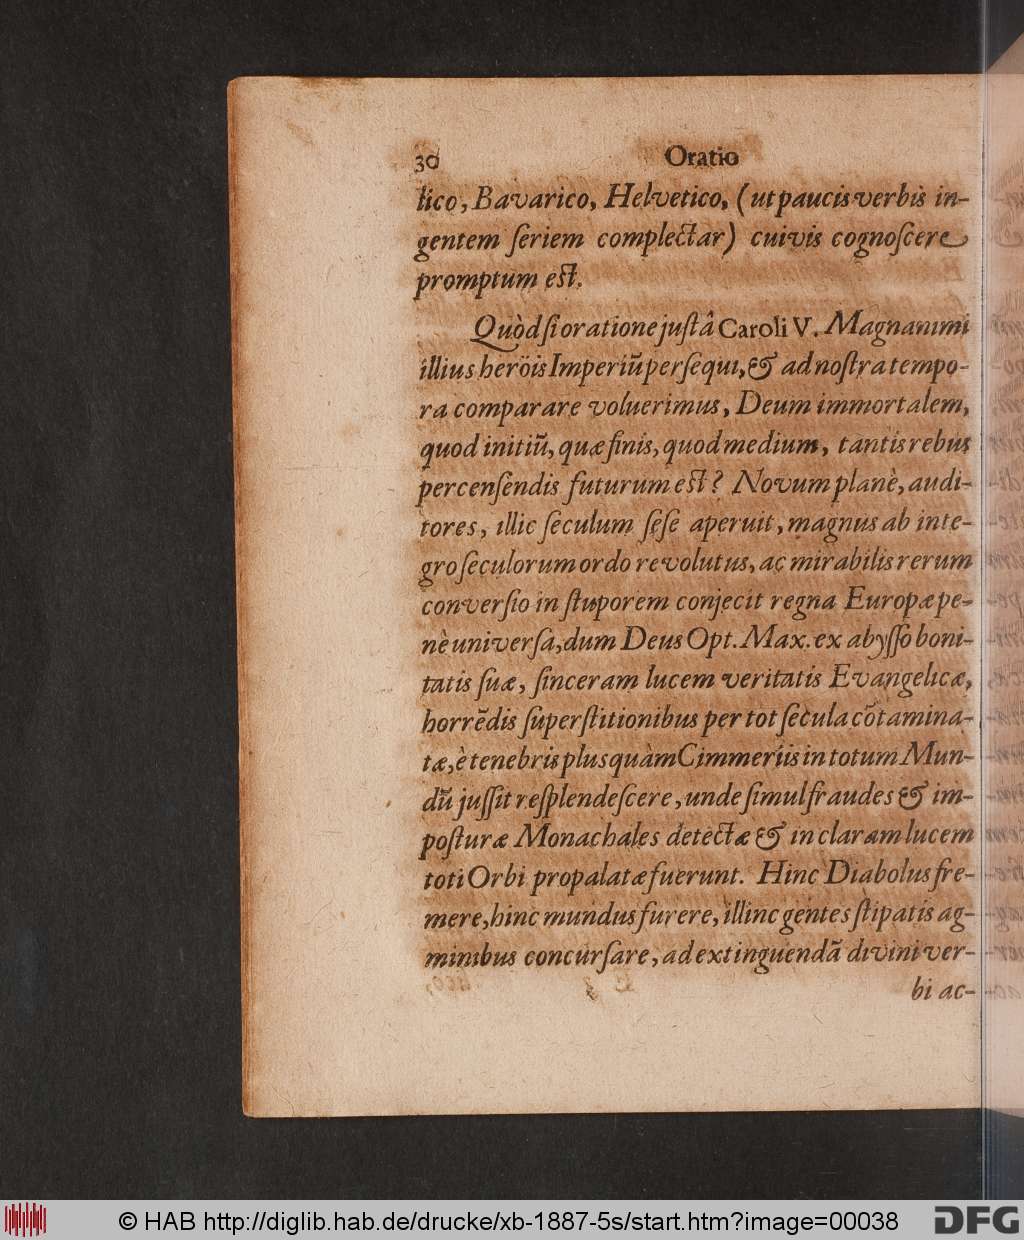 30 Oratio
lico, Bavarico, Helvetico, (ut paucis verbis in-
gentem ſeriem complectar) cuivis cognoſcere
promptum eſt.
Quòd ſi oratione juſtâ Caroli V. Magnanimi
illius heröis Imperiũ perſequi, & ad noſtra tempo-
ra comparare voluerimus, Deum immortalem,
quod initiũ, quæ finis, quod medium, tantis rebus
percenſendis futurum eſt? Novum planè, audi-
tores, illic ſeculum ſeſe aperuit, magnus ab inte-
gro ſeculorum ordo revolutus, ac mirabilis rerum
converſio in ſtuporem conjecit regna Europæ pe-
nè univerſa, dum Deus Opt. Max. ex abyſſo boni-
tatis ſuæ, ſinceram lucem veritatis Evangelicæ,
horrẽdis ſuperſtitionibus per tot ſecula cõtamina-
tæ, è tenebris plusquàm Cimmeriis in totum Mun-
dũ juſſit reſplendeſcere, unde ſimul fraudes & im-
poſturæ Monachales detectæ & in claram lucem
toti Orbi propalatæ fuerunt. Hinc Diabolus fre-
mere, hinc mundus furere, illinc gentes ſtipatis ag-
minibus concurſare, ad extinguendã divini ver-
bi ac-
© HAB http://diglib.hab.de/drucke/xb-1887-5s/start.htm?image=00038
DFG